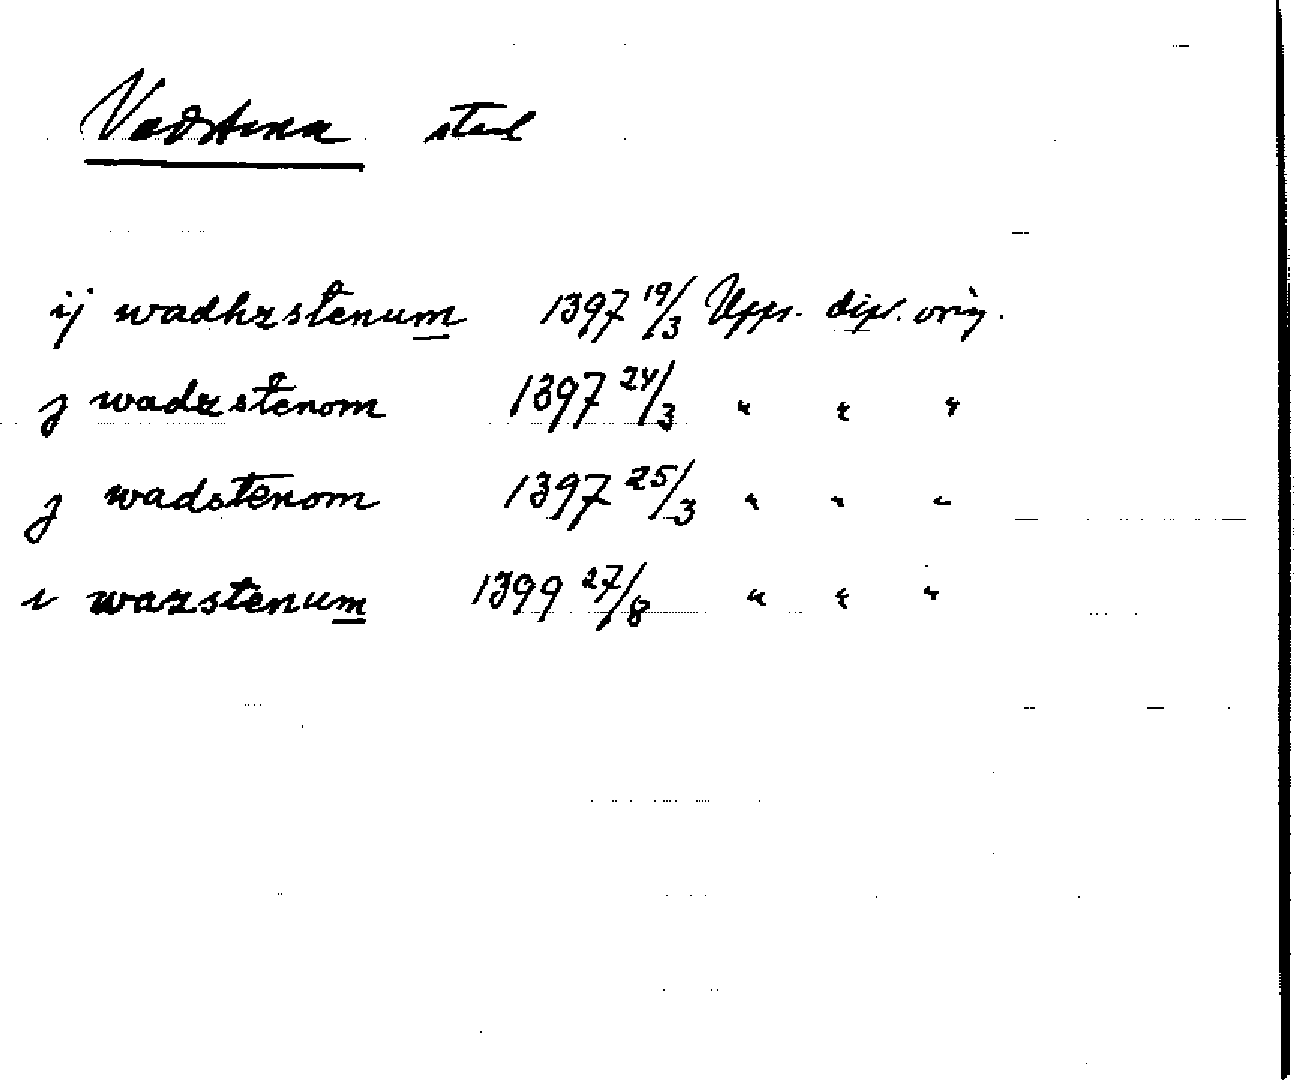 Vadstena stad
ij wadhzstenum 1397 19/3 Upps. dipl. orig.
j wadzstenom 1397 24/3 " " "
j wadstenom 1397 25/3 " " "
i wazstenum 1399 27/8 " " "